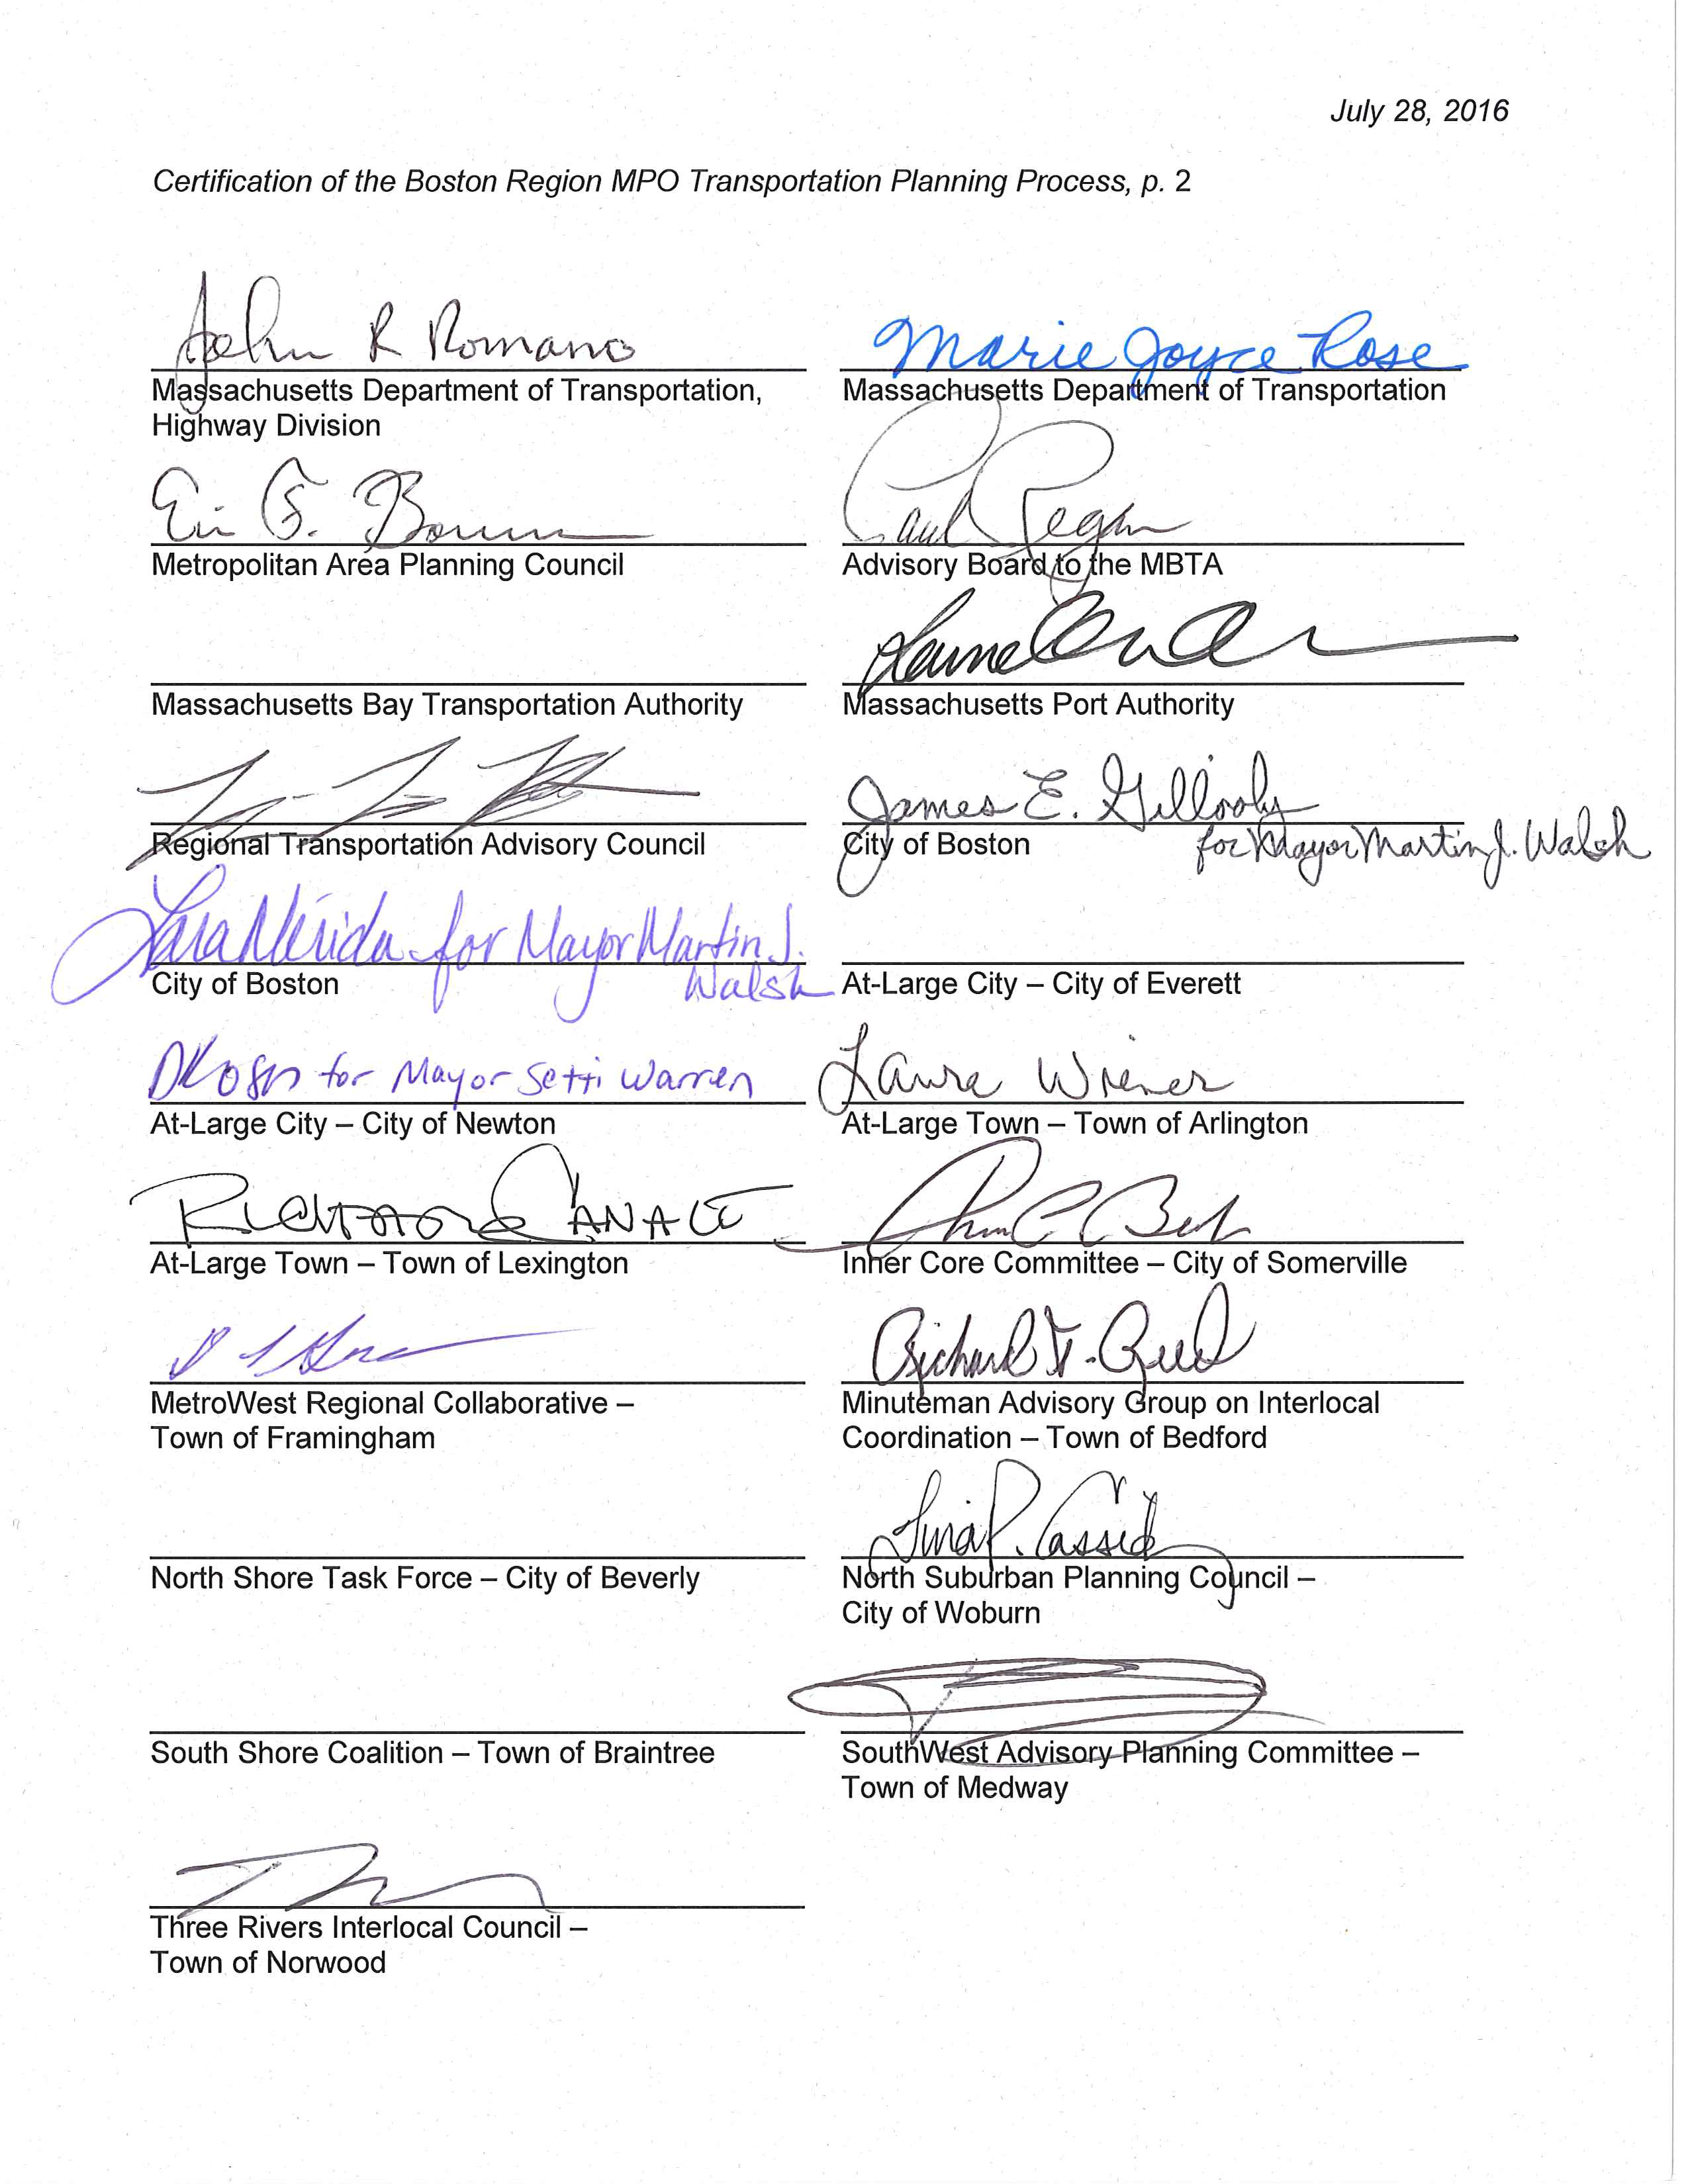 July 28, 2016
Certification of the Boston Region MPO Transportation Planning Process, p. 2
John R Romano
Marie Joyce Rose
Massachusetts Department of Transportation,
Highway Division
Massachusetts Department of Transportation
Paul Regan
Metropolitan Area Planning Council
Advisory Board to the MBTA
Massachusetts Bay Transportation Authority
Massachusetts Port Authority
James E. Gillooly
for Mayor Martin J. Walsh
Regional Transportation Advisory Council
City of Boston
Lara Mérida for Mayor Martin J.
Walsh
City of Boston
At-Large City – City of Everett
for Mayor Setti Warren
Laura Wiener
At-Large City – City of Newton
At-Large Town – Town of Arlington
Richard Canale
At-Large Town – Town of Lexington
Inner Core Committee – City of Somerville
Richard T. Reed
MetroWest Regional Collaborative –
Town of Framingham
Minuteman Advisory Group on Interlocal
Coordination – Town of Bedford
Tina P. Cassidy
North Shore Task Force – City of Beverly
North Suburban Planning Council –
City of Woburn
South Shore Coalition – Town of Braintree
SouthWest Advisory Planning Committee –
Town of Medway
Three Rivers Interlocal Council –
Town of Norwood